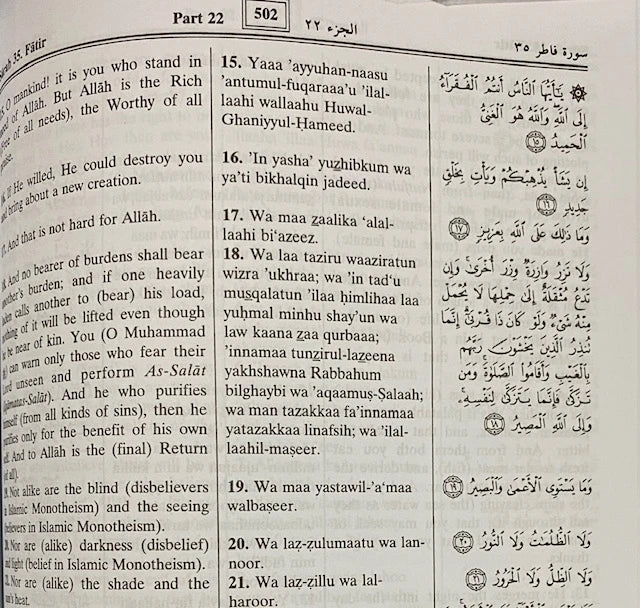 Part 22
502
الجزء ٢٢
سورة فاطر ٣٥
Surah 35. Fâtir
O mankind! it is you who stand in
of Allâh. But Allâh is the Rich
of all needs), the Worthy of all
If He willed, He could destroy you
bring about a new creation.
And that is not hard for Allâh.
And no bearer of burdens shall bear
another's burden; and if one heavily
calls another to (bear) his load,
of it will be lifted even though
be near of kin. You (O Muhammad
can warn only those who fear their
unseen and perform As-Salât
). And he who purifies
(from all kinds of sins), then he
only for the benefit of his own
And to Allâh is the (final) Return
Not alike are the blind (disbelievers
in Islamic Monotheism) and the seeing
(believers in Islamic Monotheism).
Nor are (alike) darkness (disbelief)
and light (belief in Islamic Monotheism).
Nor are (alike) the shade and the
sun's heat.
15. Yaaa 'ayyuhan-naasu
'antumul-fuqaraaa'u 'ilal-
laahi wallaahu Huwal-
Ghaniyyul-Ḥameed.
16. 'In yasha' yuzhibkum wa
ya'ti bikhalqin jadeed.
17. Wa maa zaalika 'alal-
laahi bi'azeez.
18. Wa laa taziru waaziratun
wizra 'ukhraa; wa 'in tad'u
musqalatun 'ilaa ḥimlihaa laa
yuḥmal minhu shay'un wa
law kaana zaa qurbaa;
'innamaa tunzirul-lazeena
yakhshawna Rabbahum
bilghaybi wa 'aqaamuṣ-Ṣalaah;
wa man tazakkaa fa'innamaa
yatazakkaa linafsih; wa 'ilal-
laahil-maṣeer.
19. Wa maa yastawil-'a'maa
walbaṣeer.
20. Wa laẓ-ẓulumaatu wa lan-
noor.
21. Wa laẓ-ẓillu wa lal-
haroor.
۞ يَٰٓأَيُّهَا ٱلنَّاسُ أَنتُمُ ٱلْفُقَرَآءُ
إِلَى ٱللَّهِ وَٱللَّهُ هُوَ ٱلْغَنِىُّ
ٱلْحَمِيدُ ١٥
إِن يَشَأْ يُذْهِبْكُمْ وَيَأْتِ بِخَلْقٍ
جَدِيدٍ ١٦
وَمَا ذَٰلِكَ عَلَى ٱللَّهِ بِعَزِيزٍ ١٧
وَلَا تَزِرُ وَازِرَةٌ وِزْرَ أُخْرَىٰ وَإِن
تَدْعُ مُثْقَلَةٌ إِلَىٰ حِمْلِهَا لَا يُحْمَلْ
مِنْهُ شَىْءٌ وَلَوْ كَانَ ذَا قُرْبَىٰٓ إِنَّمَا
تُنذِرُ ٱلَّذِينَ يَخْشَوْنَ رَبَّهُم
بِٱلْغَيْبِ وَأَقَامُوا۟ ٱلصَّلَوٰةَ وَمَن
تَزَكَّىٰ فَإِنَّمَا يَتَزَكَّىٰ لِنَفْسِهِۦ
وَإِلَى ٱللَّهِ ٱلْمَصِيرُ ١٨
وَمَا يَسْتَوِى ٱلْأَعْمَىٰ وَٱلْبَصِيرُ ١٩
وَلَا ٱلظُّلُمَٰتُ وَلَا ٱلنُّورُ ٢٠
وَلَا ٱلظِّلُّ وَلَا ٱلْحَرُورُ ٢١